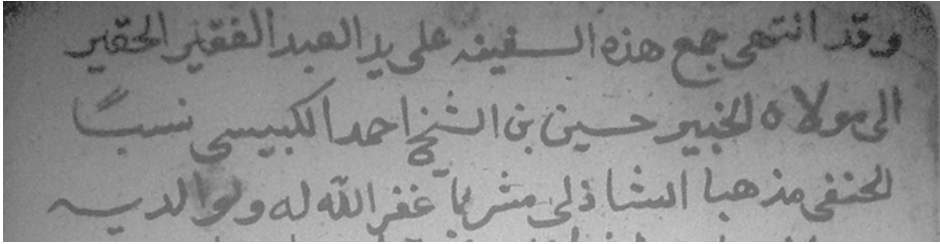 وقد انتهى جمع هذه السفينه على يد العبد الفقير الحقير
الى مولاه الخبير حسين بن الشيخ احمد الكبيسي نسبًا
الحنفى مذهبا الشاذلى مشربا غفر الله له ولوالديه